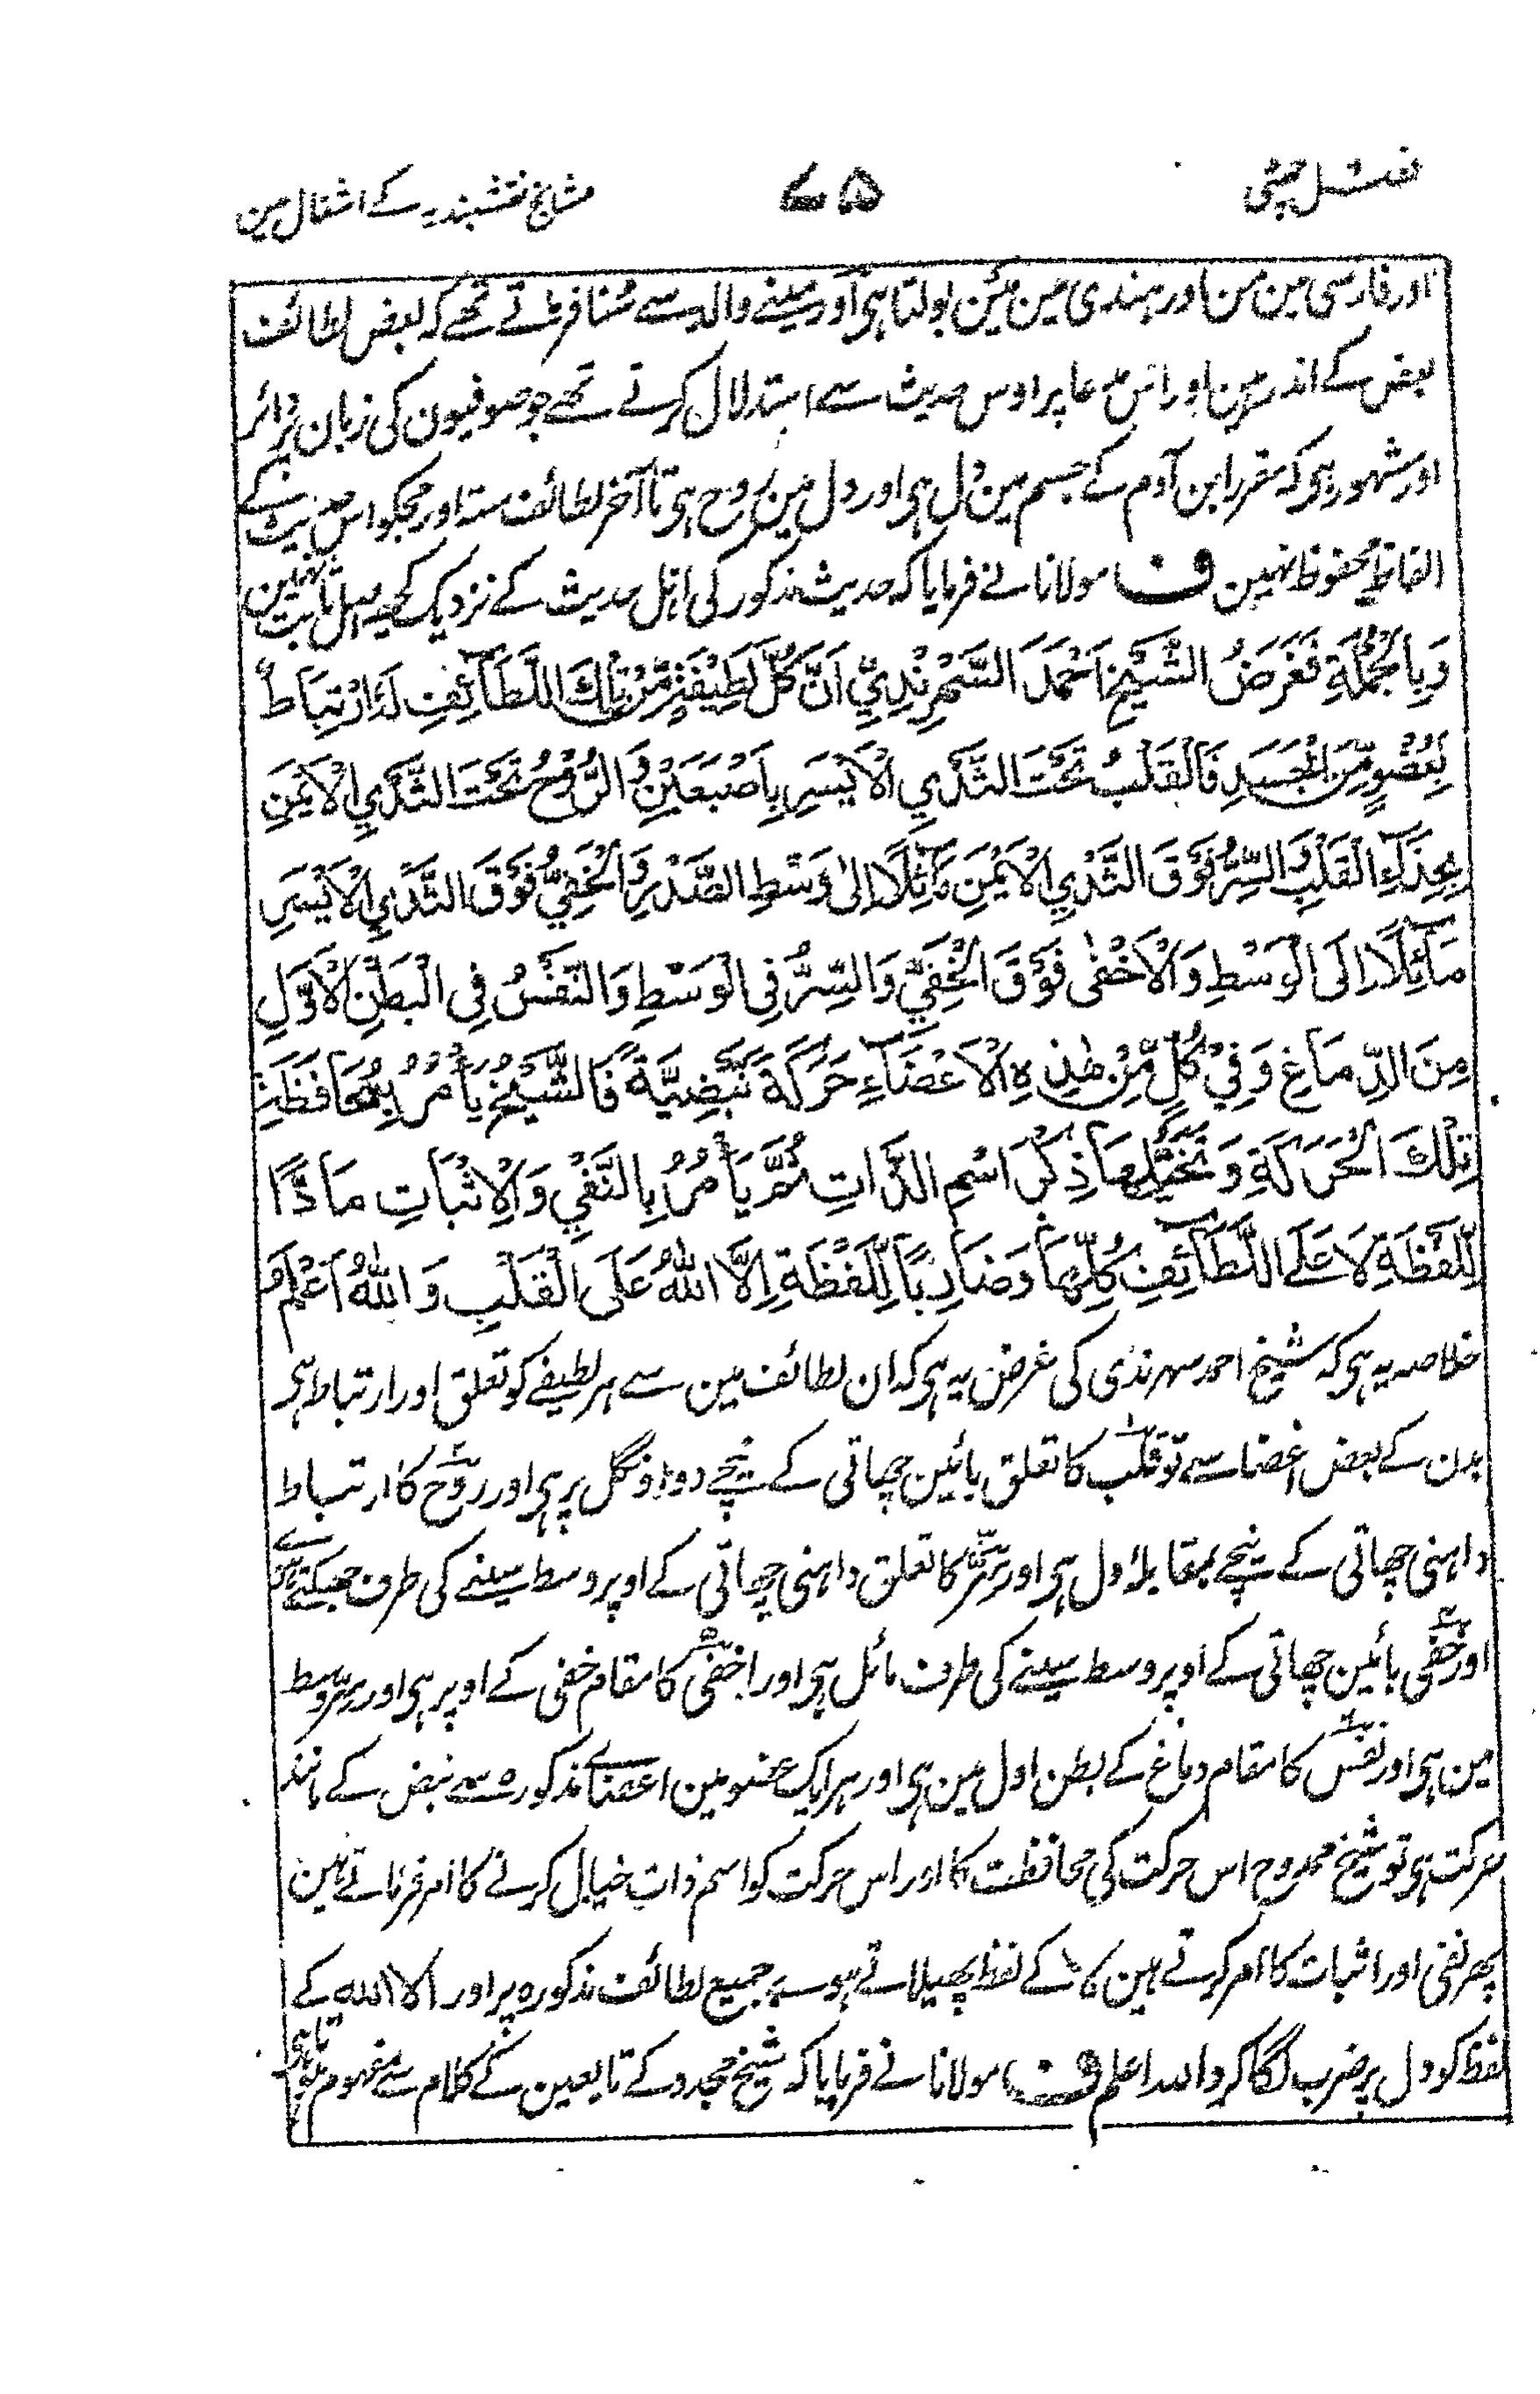 فصل چھٹی
۷۵
مشایخ نقشبندیہ کے اشغال مین
اور فارسی مین من اور ہندی مین مَین بولتا ہی اور مینے والد سے سُنا فرماتے تھے کہ بعض لطائف
بعض کے اندر ہین اور اس مدعا پر اوس حدیث سے استدلال کرتے تھے جو صوفیون کی زبان پر دائر
اور مشہور ہی کہ مقرر ابن آدم کے جسم مین دل ہی اور دل مین روح ہی تا آخر لطائف ستہ اور مجکو اس حدیث کے
الفاظ محفوظ نہین ف مولانا نے فرمایا کہ حدیث مذکور کی اہل حدیث کے نزدیک کچھ اصل ثابت نہین
وَبِالْجُمْلَةِ فَغَرَضُ الشَّيْخِ اَحْمَدَ السَّهْرِنْدِيِّ اَنَّ كُلَّ لَطِيْفَةٍ مِّنْ تِلْكَ اللَّطَآئِفِ لَهٗ ارْتِبَاطٌ
بِعُضْوٍ مِّنَ الْجَسَدِ فَالْقَلْبُ تَحْتَ الثَّدْيِ الْاَيْسَرِ بِاِصْبَعَيْنِ وَ الرُّوْحُ تَحْتَ الثَّدْيِ الْاَيْمَنِ
بِحِذَآءِ الْقَلْبِ وَ السِّرُّ فَوْقَ الثَّدْيِ الْاَيْمَنِ مَآئِلًا اِلىٰ وَسْطِ الصَّدْرِ وَ الْخَفِيُّ فَوْقَ الثَّدْيِ الْاَيْسَرِ
مَآئِلًا اِلَى الْوَسْطِ وَ الْاَخْفٰى فَوْقَ الْخَفِيِّ وَ السِّرُّ فِى الْوَسْطِ وَ النَّفْسُ فِى الْبَطْنِ الْاَوَّلِ
مِنَ الدِّمَاغِ وَ فِيْ كُلٍّ مِّنْ هٰذِهِ الْاَعْضَآءِ حَرَكَةً نَّبْضِيَّةً فَالشَّيْخُ يَأْمُرُ بِمُحَافَظَةِ
تِلْكَ الْحَرَكَةِ وَ تَخَيُّلِهَا ذِكْرَ اسْمِ الذَّاتِ ثُمَّ يَأْمُرُ بِالنَّفْيِ وَ الْاِثْبَاتِ مَادًّا
لِلَفْظَةِ لَا عَلَى اللَّطَآئِفِ كُلِّهَا وَ ضَارِبًا لِلَفْظَةِ اِلَّا اللهُ عَلَى الْقَلْبِ وَ اللهُ اَعْلَمُ
خلاصہ یہ ہی کہ شیخ احمد سہرندی کی غرض یہ ہی کہ ان لطائف مین سے ہر لطیفے کو تعلق اور ارتباط ہی
بدن کے بعض اعضا سے تو قلب کا تعلق بائین چھاتی کے نیچے دو اونگل پر ہی اور روح کا ارتباط
داہنی چھاتی کے نیچے بمقابلہ دل ہی اور سر کا تعلق داہنی چھاتی کے اوپر وسط سینے کی طرف جھکتے
اور خفی بائین چھاتی کے اوپر وسط سینے کی طرف مائل ہی اور اخفی کا مقام خفی کے اوپر ہی اور سر وسط
مین ہی اور نفس کا مقام دماغ کے بطن اول مین ہی اور ہر ایک عضو مین اعضاے مذکورہ سے نبض کے مانند
حرکت ہی تو شیخ ممدوح اس حرکت کی محافظت کا اور اس حرکت کو اسم ذات خیال کرنے کا امر فرماتے ہین
پھر نفی اور اثبات کا امر کرتے ہین لا کے لفظ پھیلاتے ہوے جمیع لطائف مذکورہ پر اور الا الله کے
لفظ کو دل پر ضرب لگا کر والله اعلم ف مولانا نے فرمایا کہ شیخ مجدد کے تابعین کے کلام سے مفہوم